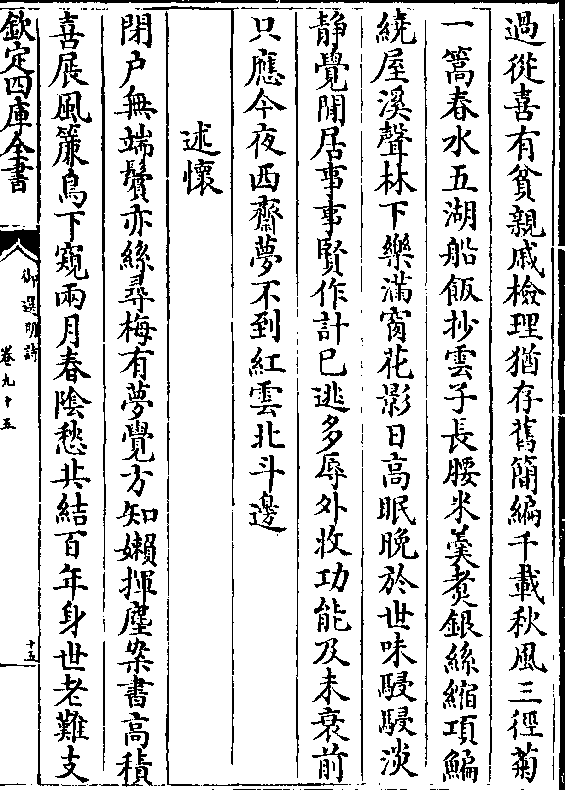 過從喜有貧親戚檢理猶存舊簡編千載秋風三徑菊
一篙春水五湖船飯抄雲子長腰米羮煮銀絲縮項鯿
繞屋溪聲林下樂滿窗花影日高眠晚於世味駸駸淡
静覺閒居事事賢作計已逃多辱外收功能及未衰前
只應今夜西齋夢不到紅雲北斗邊
述懷
閉户無端鬢亦絲尋梅有夢覺方知嬾揮塵案書高積
喜展風簾鳥下窺兩月春陰愁共結百年身世老難支
欽定四庫全書
御選明詩
卷九十五
十五